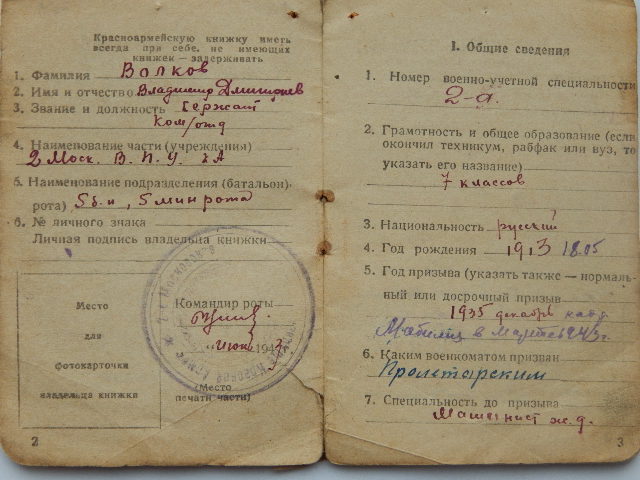 Красноармейскую книжку иметь
всегда при себе, не имеющих
книжек — задерживать
1. Фамилия Волков
2. Имя и отчество Владимир Дмитриев
3. Звание и должность Сержант
Ком/отд
4. Наименование части (учреждения)
2 Моск. В. П. У.
5. Наименование подразделения (батальон,
рота) 5 б-н, 5 мин рота
6. № личного знака
Личная подпись владельца книжки
Место
для
фотокарточки
владельца книжки
Командир роты
„ Июнь 194
(Место
печати части)
2
I. Общие сведения
1. Номер военно-учетной специальности
2-а.
2. Грамотность и общее образование (если
окончил техникум, рабфак или вуз, то
указать его название)
7 классов
3. Национальность русский
4. Год рождения 1913 18.05
5. Год призыва (указать также — нормаль-
ный или досрочный призыв
1935 декабрь
в марте 1943г.
6. Каким военкоматом призван
Пролетарским
7. Специальность до призыва
Машинист ж. д.
3